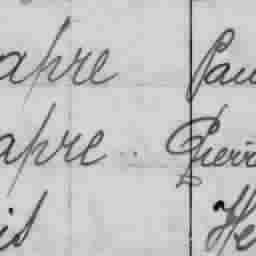 apre Pau
apre Pierr
is He